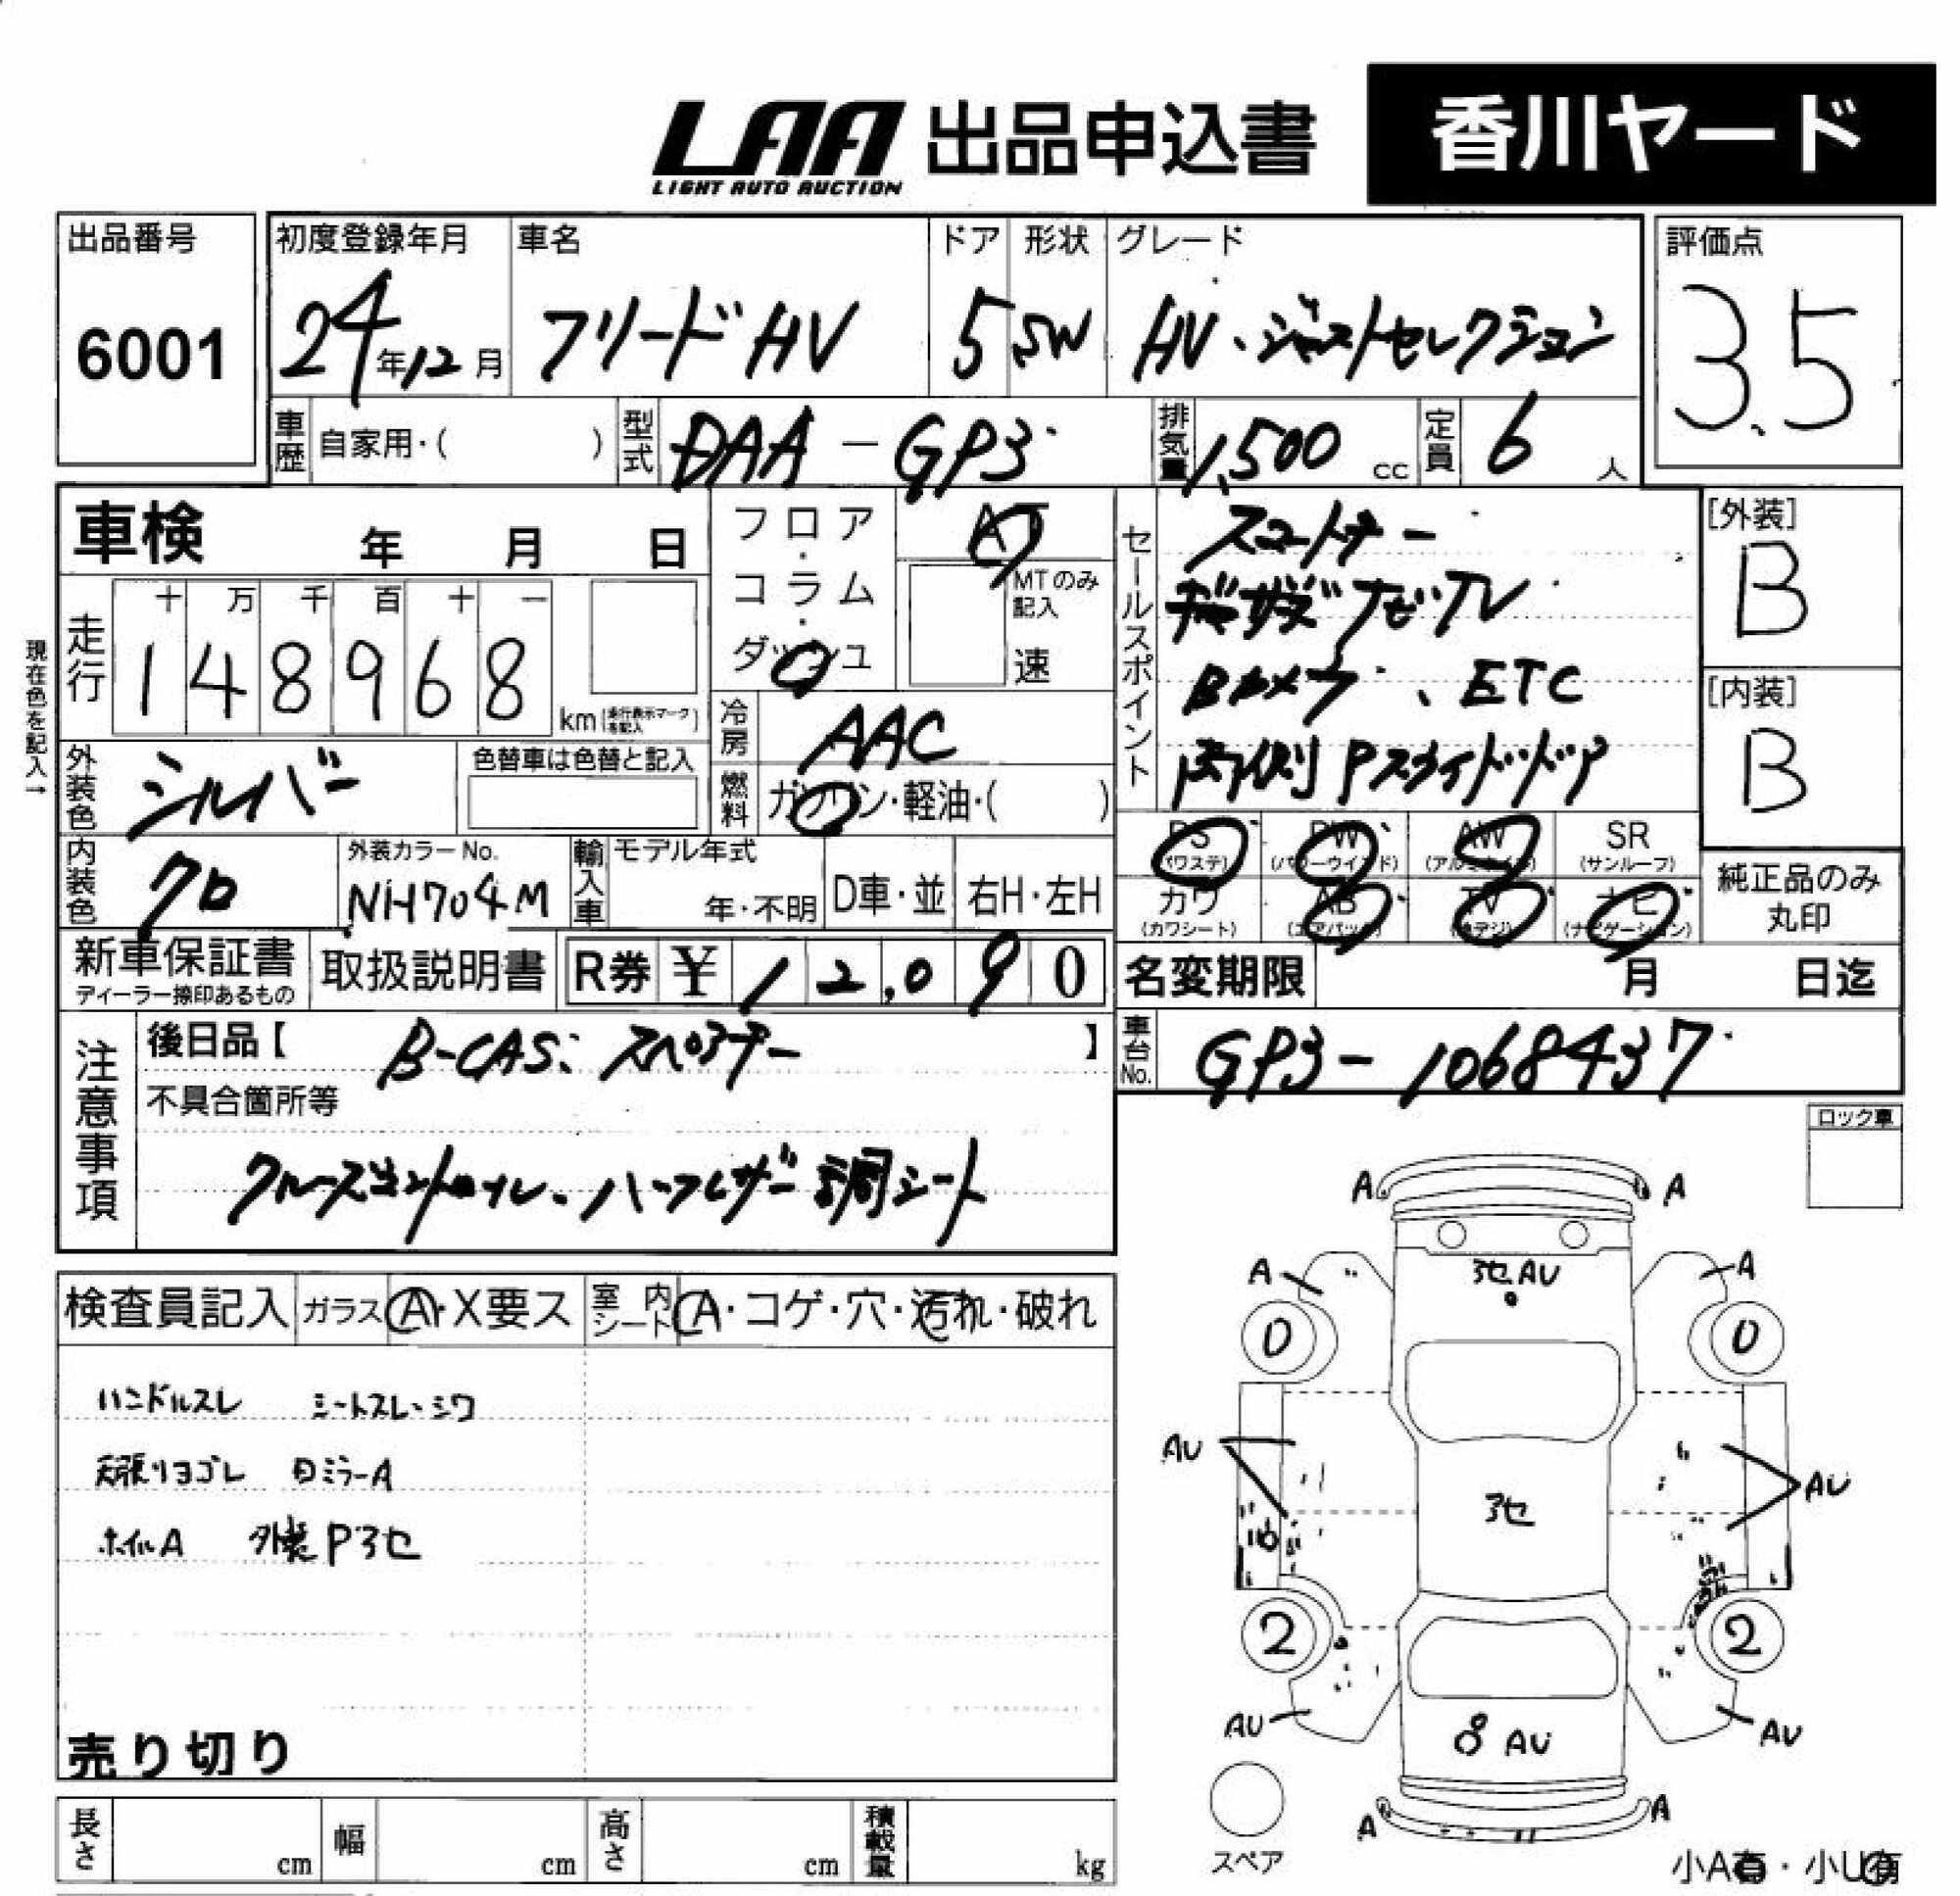 LAA 出品申込書 香川ヤード
LIGHT AUTO AUCTION
出品番号 6001
初度登録年月 24年12月
車名 フリードHV
ドア 5
形状 SW
グレード HV・ジャストセレクション
評価点 3.5
車歴 自家用・( )
型式 DAA-GP3
排気量 1,500 cc
定員 6 人
車検 年 月 日
フロア・コラム・ダッシュ
AT
MTのみ記入 速
現在色を記入→
走行 十 万 千 百 十 一
148968 km(走行表示マークを記入)
冷房 AAC
燃料 ガソリン・軽油・( )
外装色 シルバー
色替車は色替と記入
内装色 クロ
外装カラーNo. NH704M
輸入車 モデル年式 年・不明
D車・並 右H・左H
セールスポイント
スマートキー
ギャザズ ナビTV
Bカメラ、ETC
両側Pスライドドア
[外装] B
[内装] B
PS (パワステ) PW (パワーウインド) AW (アルミホイル) SR (サンルーフ)
カワ (カワシート) AB (エアバッグ) TV (地デジ) ナビ (ナビゲーション)
純正品のみ丸印
新車保証書 ディーラー捺印あるもの
取扱説明書
R券 ¥12,090
名変期限 月 日迄
注意事項
後日品【 B-CAS、スペアキー 】
不具合箇所等
クルーズコントロール、ハーフレザー調シート
車台No. GP3-1068437
ロック車
検査員記入 ガラス A・X要ス 室内シート A・コゲ・穴・汚れ・破れ
ハンドルスレ シートスレ・シワ
天張りヨゴレ
ホイルA 外装Pヨセ
売り切り
長さ cm 幅 cm 高さ cm 積載量 kg
A A
A A
AU
0 0
AU AU
2 2
AU AU
AU
A A
スペア
小A有・小U有